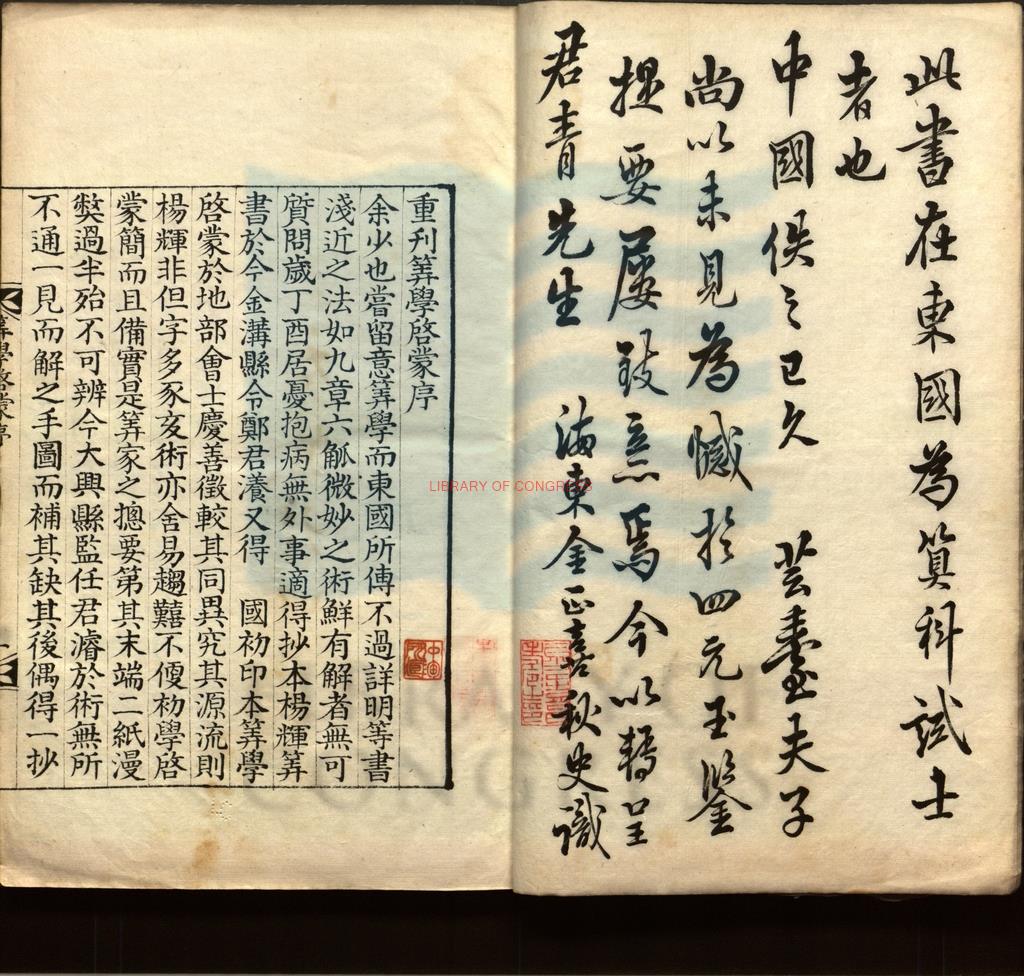 此書在東國為算科試士
者也
中國佚之已久 芸臺夫子
尚以未見為憾於四元玉鑒
提要屢致意焉今以轉呈
君青先生 海東金正喜秋史識
重刊筭學啓蒙序
余少也嘗留意筭學而東國所傳不過詳明等書
淺近之法如九章六觚微妙之術鮮有解者無可
質問歲丁酉居憂抱病無外事適得抄本楊輝筭
書於今金溝縣令鄭君瀁又得 國初印本筭學
啓蒙於地部會士慶善徵較其同異究其源流則
楊輝非但字多豕亥術亦舍易趨囏不便初學啓
蒙簡而且備實是筭家之摠要第其末端二紙漫
獘過半殆不可辨今大興縣監任君濬於術無所
不通一見而解之手圖而補其缺其後偶得一抄
筭學啓蒙序
LIBRARY OF CONGRESS